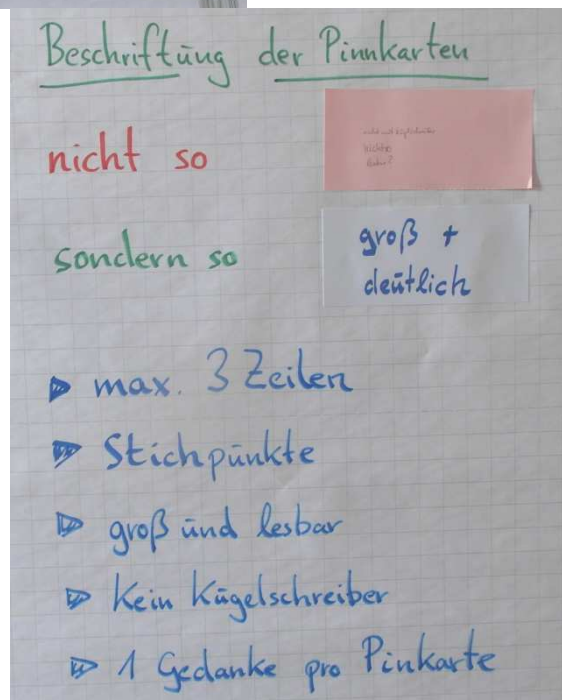 Beschriftung der Pinnkarten
nicht so
sondern so
groß +
deutlich
max. 3 Zeilen
Stichpunkte
groß und lesbar
Kein Kugelschreiber
1 Gedanke pro Pinkarte